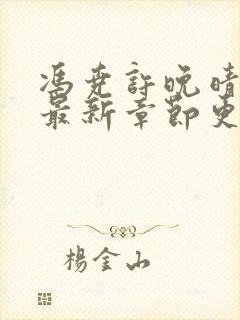 馮尭許晚晴
最新章節更
楊金山